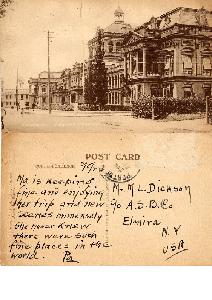 POST CARD
Ma is keeping
fine and enjoying
her trip and new
scenes immensely
she never knew
there were such
fine places in the
world. Pa
Mr M L Dickson
c/o A.S.B. Co
Elmira
N Y
USA